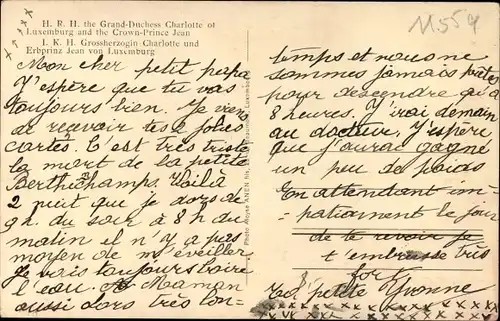 H. R. H. the Grand-Duchess Charlotte of
Luxemburg and the Crown-Prince Jean
I. K. H. Grossherzogin Charlotte und
Erbprinz Jean von Luxemburg
Mon cher petit papa
J'espère que tu vas
toujours bien. Je viens
de recevoir tes 2 jolies
cartes. C'est très triste
la mort de la petite
Berthe Champs. Voilà
2 nuit que je dors de
9h. du soir à 8h du
matin et il n'y a pas
moyen de m'éveiller
Je vais toujours boire
l'eau. Maman
aussi dors très lon=
Photo Aloyse ANEN
Luxembourg
11554
temps et nous ne
sommes jamais prête
pour descendre qu'à
8 heures. J'irai demain
au docteur. J'espère
que j'aurai gagné
un peu de poids
En attendant im-
=patiamment le jour
de te revoir je
t'embrasse très
fort
Ta petite Yvonne
x x x x x x x x x x